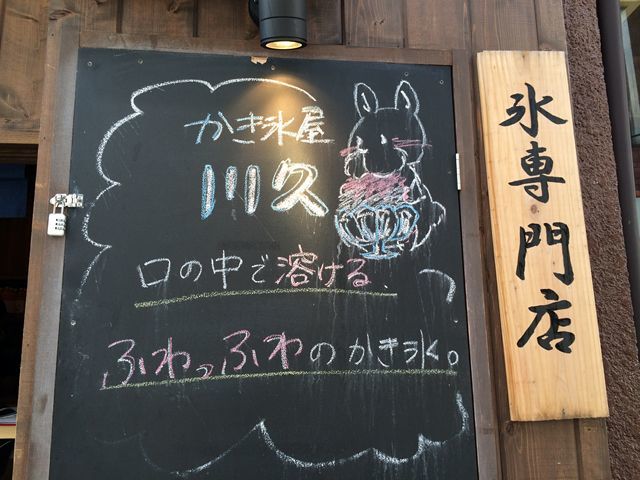 かき氷屋
川久
口の中で溶ける、
ふわっふわのかき氷。
氷専門店